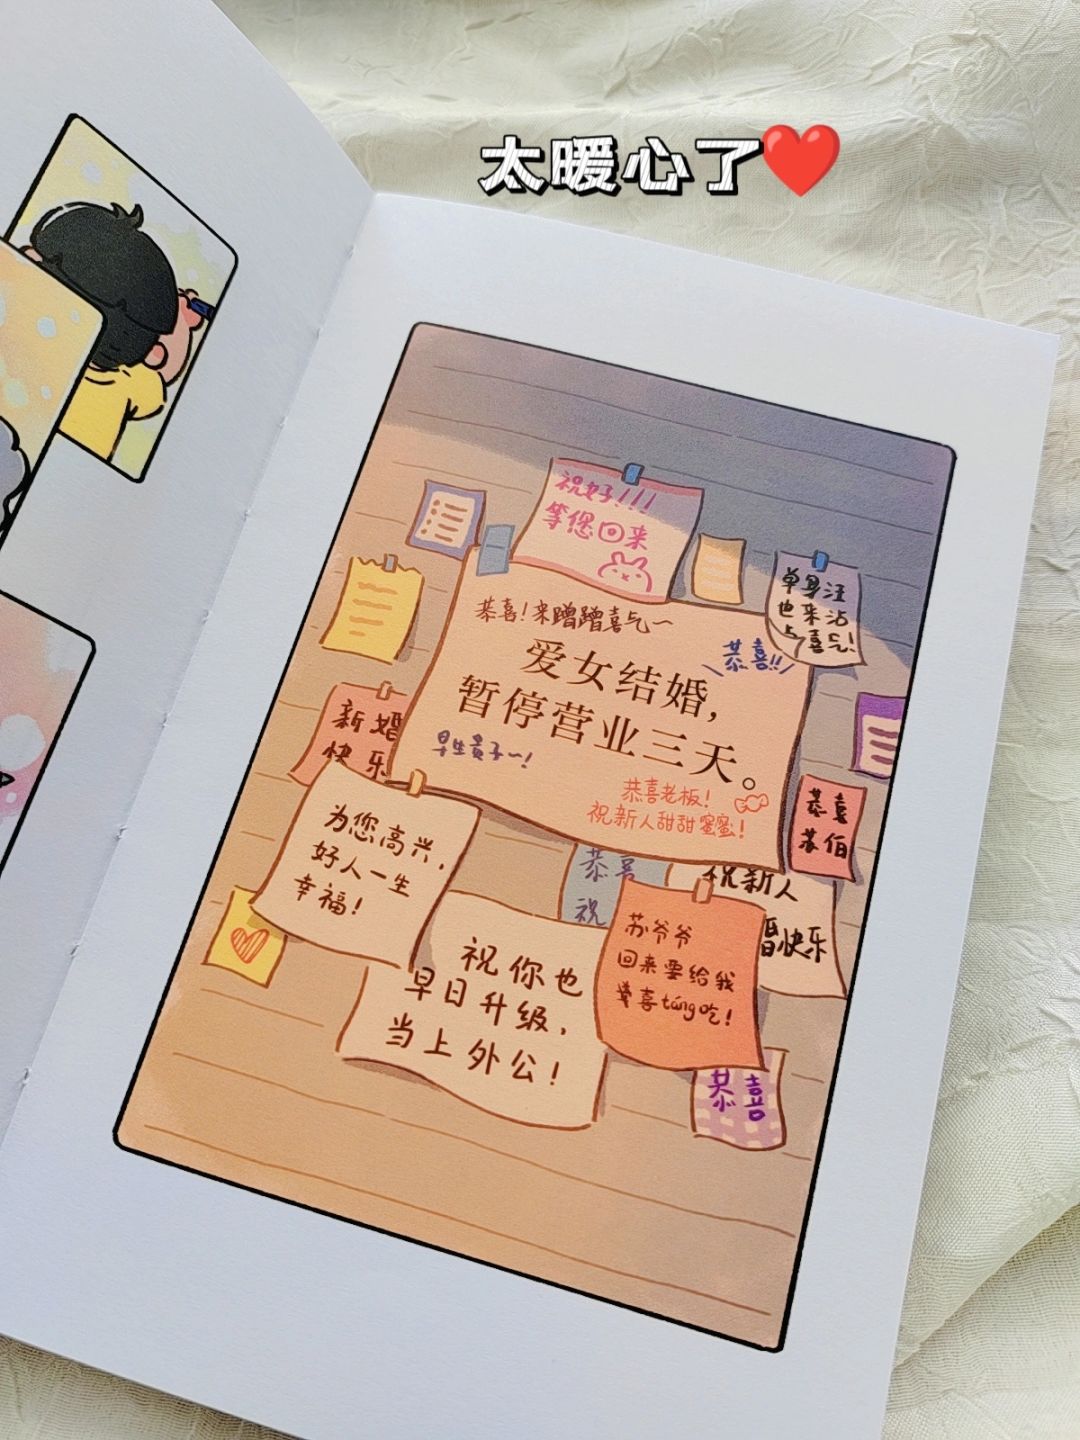 太暖心了❤️
祝好!!!
等您回来
单身汪
也来沾
上喜气!
恭喜!来蹭蹭喜气~
恭喜!!
爱女结婚,
暂停营业三天。
早生贵子~!
恭喜老板!
祝新人甜甜蜜蜜!
新婚
快乐
恭喜
苏伯
为您高兴,
好人一生
幸福!
恭喜
祝
祝新人
婚快乐
苏爷爷
回来要给我
喜táng吃!
祝你也
早日升级,
当上外公!
恭喜